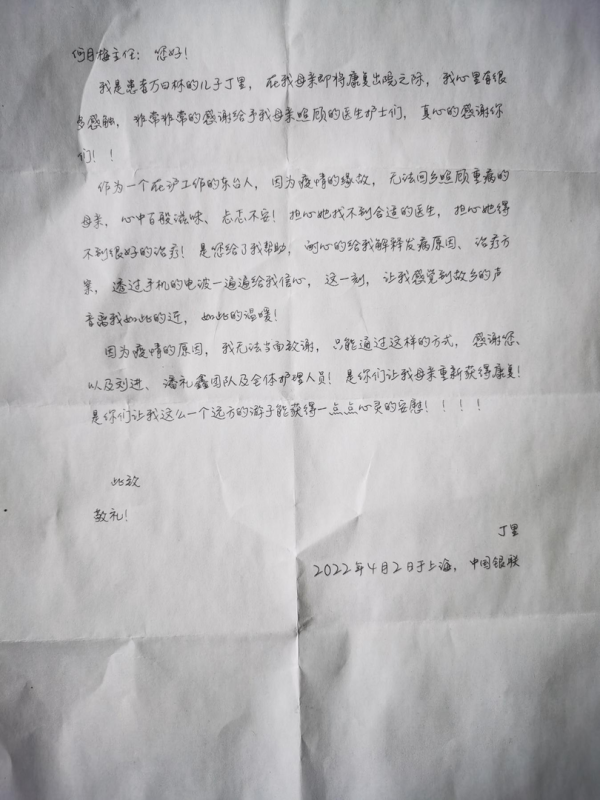 何目梅主任：您好！
我是患者万日林的儿子丁里，在我母亲即将康复出院之际，我心里有很
多感触，非常非常的感谢给予我母亲照顾的医生护士们，真心的感谢你
们！！
作为一个在沪工作的东台人，因为疫情的缘故，无法回乡照顾重病的
母亲，心中百般滋味、忐忑不安！担心她找不到合适的医生，担心她得
不到很好的治疗！是您给了我帮助，耐心的给我解释发病原因、治疗方
案，透过手机的电波一遍遍给我信心，这一刻，让我感觉到故乡的声
音离我如此的近，如此的温暖！
因为疫情的原因，我无法当面致谢，只能通过这样的方式，感谢您、
以及刘进、潘礼鑫团队及全体护理人员！是你们让我母亲重新获得康复！
是你们让我这么一个远方的游子能获得一点点心灵的安慰！！！！
此致
敬礼！
丁里
2022年4月2日于上海，中国银联